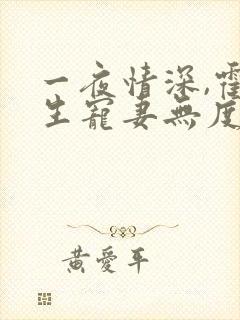 一夜情深,霍
生寵妻無度
黃愛平